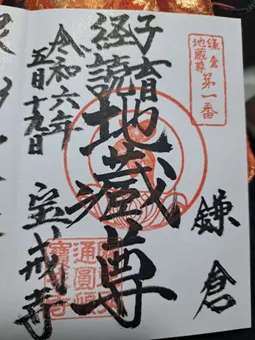 鎌倉
地蔵尊
第一番
鎌倉
子育
経読地蔵尊
令和六年
五月十九日
宝戒寺